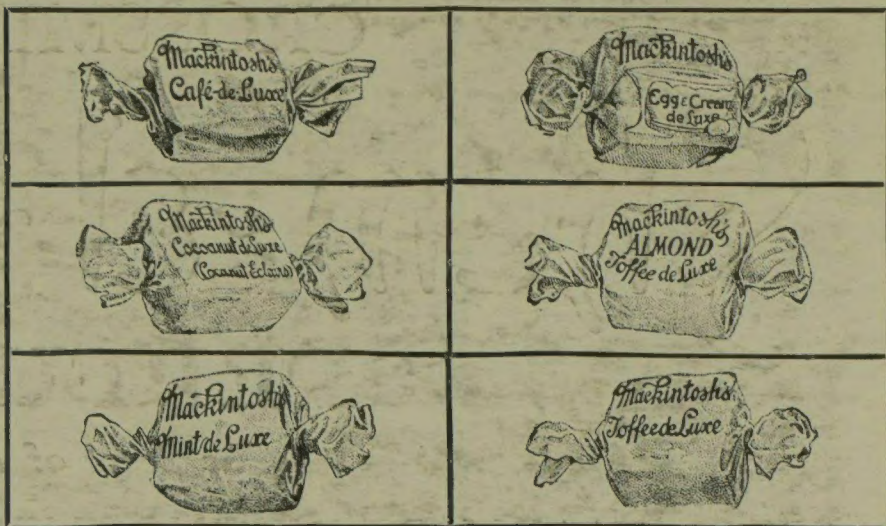 Mackintosh's
Café-de-Luxe
Mackintosh's
Egg & Cream
de Luxe
Mackintosh's
Cocoanut de Luxe
(Cocanut Eclairs)
Mackintosh's
ALMOND
Toffee de Luxe
Mackintosh's
Mint de Luxe
Mackintosh's
Toffee de Luxe